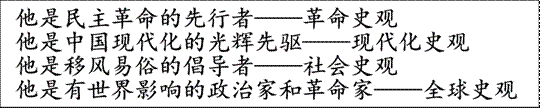 他是民主革命的先行者——革命史观
他是中国现代化的光辉先驱——现代化史观
他是移风易俗的倡导者——社会史观
他是有世界影响的政治家和革命家——全球史观